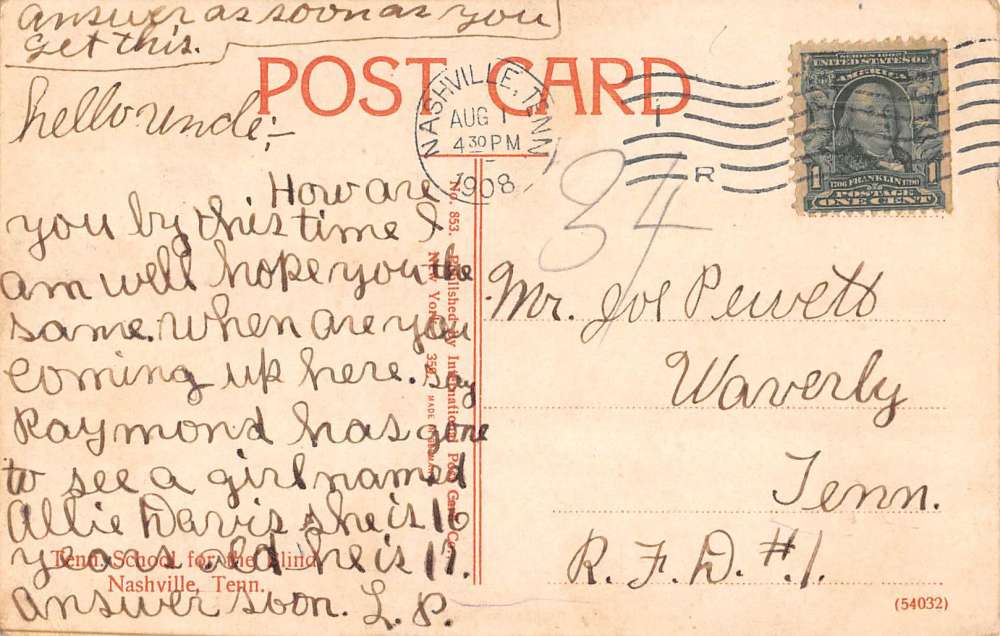 answer as soon as you
get this.
POST CARD
NASHVILLE, TENN
AUG 1
4 30 PM
1908
R
SERIES 1902
UNITED STATES OF
AMERICA
1706 FRANKLIN 1790
1 POSTAGE 1
ONE CENT
34
hello uncle;-
How are
you by this time I
am well hope you the
same. When are you
coming up here. say
Raymond has gone
to see a girl named
Allie Davis she is 16
years old he is 17.
Answer soon. L.P.
Mr. Joe Pewett
Waverly
Tenn.
R.F.D. #.1.
No. 853. Published by International Post Card Co.,
New York. 359. MADE IN GERMANY
Tenn. School for the Blind
Nashville, Tenn.
(54032)